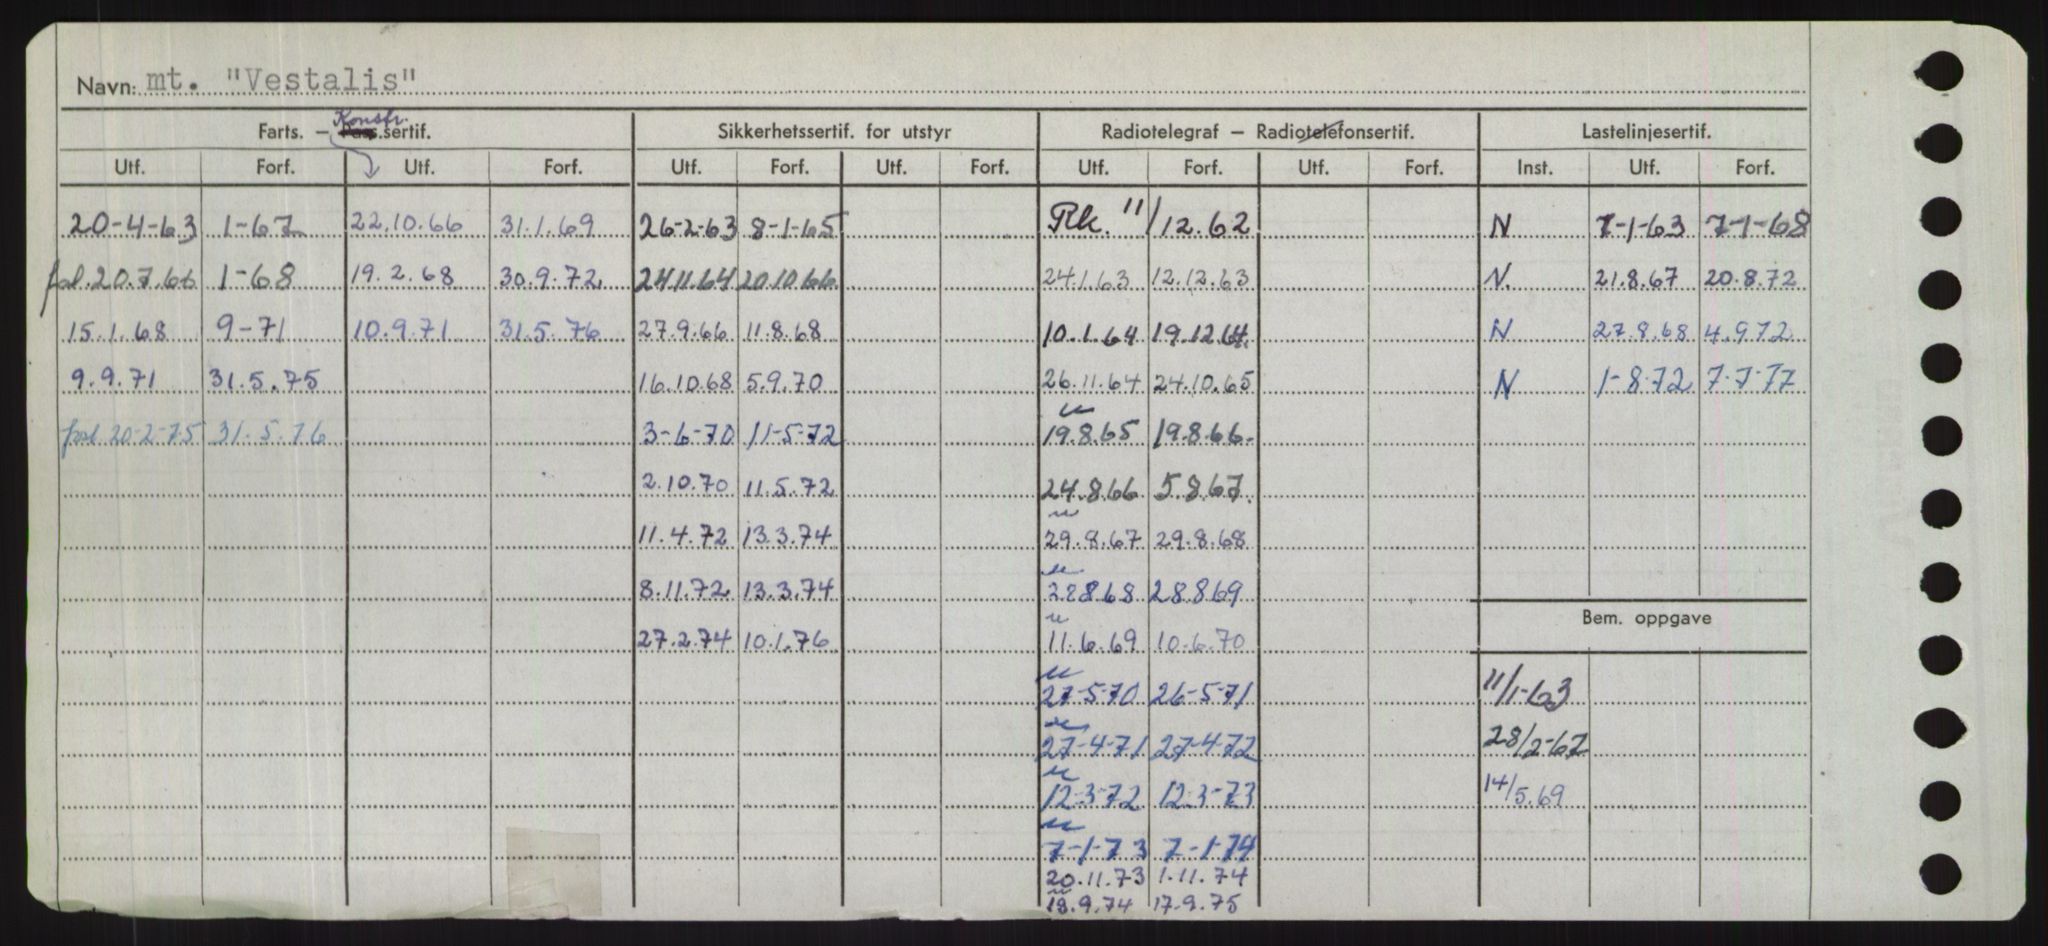 Navn: mt. "Vestalis"
Konstr.
Farts. – Pass.sertif. Sikkerhetssertif. for utstyr Radiotelegraf – Radiotelefonsertif. Lastelinjesertif.
Utf. Forf. Utf. Forf. Utf. Forf. Utf. Forf. Utf. Forf. Utf. Forf. Inst. Utf. Forf.
20-4-63 1-67 22.10.66 31.1.69 26-2-63 8-1-65 Rk. 11/12.62 N 7-1-63 7-1-68
fol.20.7.66 1-68 19.2.68 30.9.72 24.11.64 20.10.66 24.1.63 12.12.63 N. 21.8.67 20.8.72
15.1.68 9-71 10.9.71 31.5.76 27.9.66 11.8.68 10.1.64 19.12.64. N 27.8.68 4.9.72
9.9.71 31.5.75 16.10.68 5.9.70 26.11.64 24.10.65 N 1-8-72 7-7-77
20-2-75 31.5.76 3-6-70 11-5-72 19.8.65 19.8.66.
2.10.70 11.5.72 24.8.66 5.8.67.
11.4.72 13.3.74 29.8.67 29.8.68
8.11.72 13.3.74 28868 28869
Bem. oppgave
27.2.74 10.1.76 11.6.69 10.6.70
27-5-70 26-5-71 11/1-63
27-4-71 27-4-72 28/2-67
12-3-72 12-3-73 14/5.69
7-1-73 7-1-74
20.11.73 1.11.74
18.9.74 17.9.75